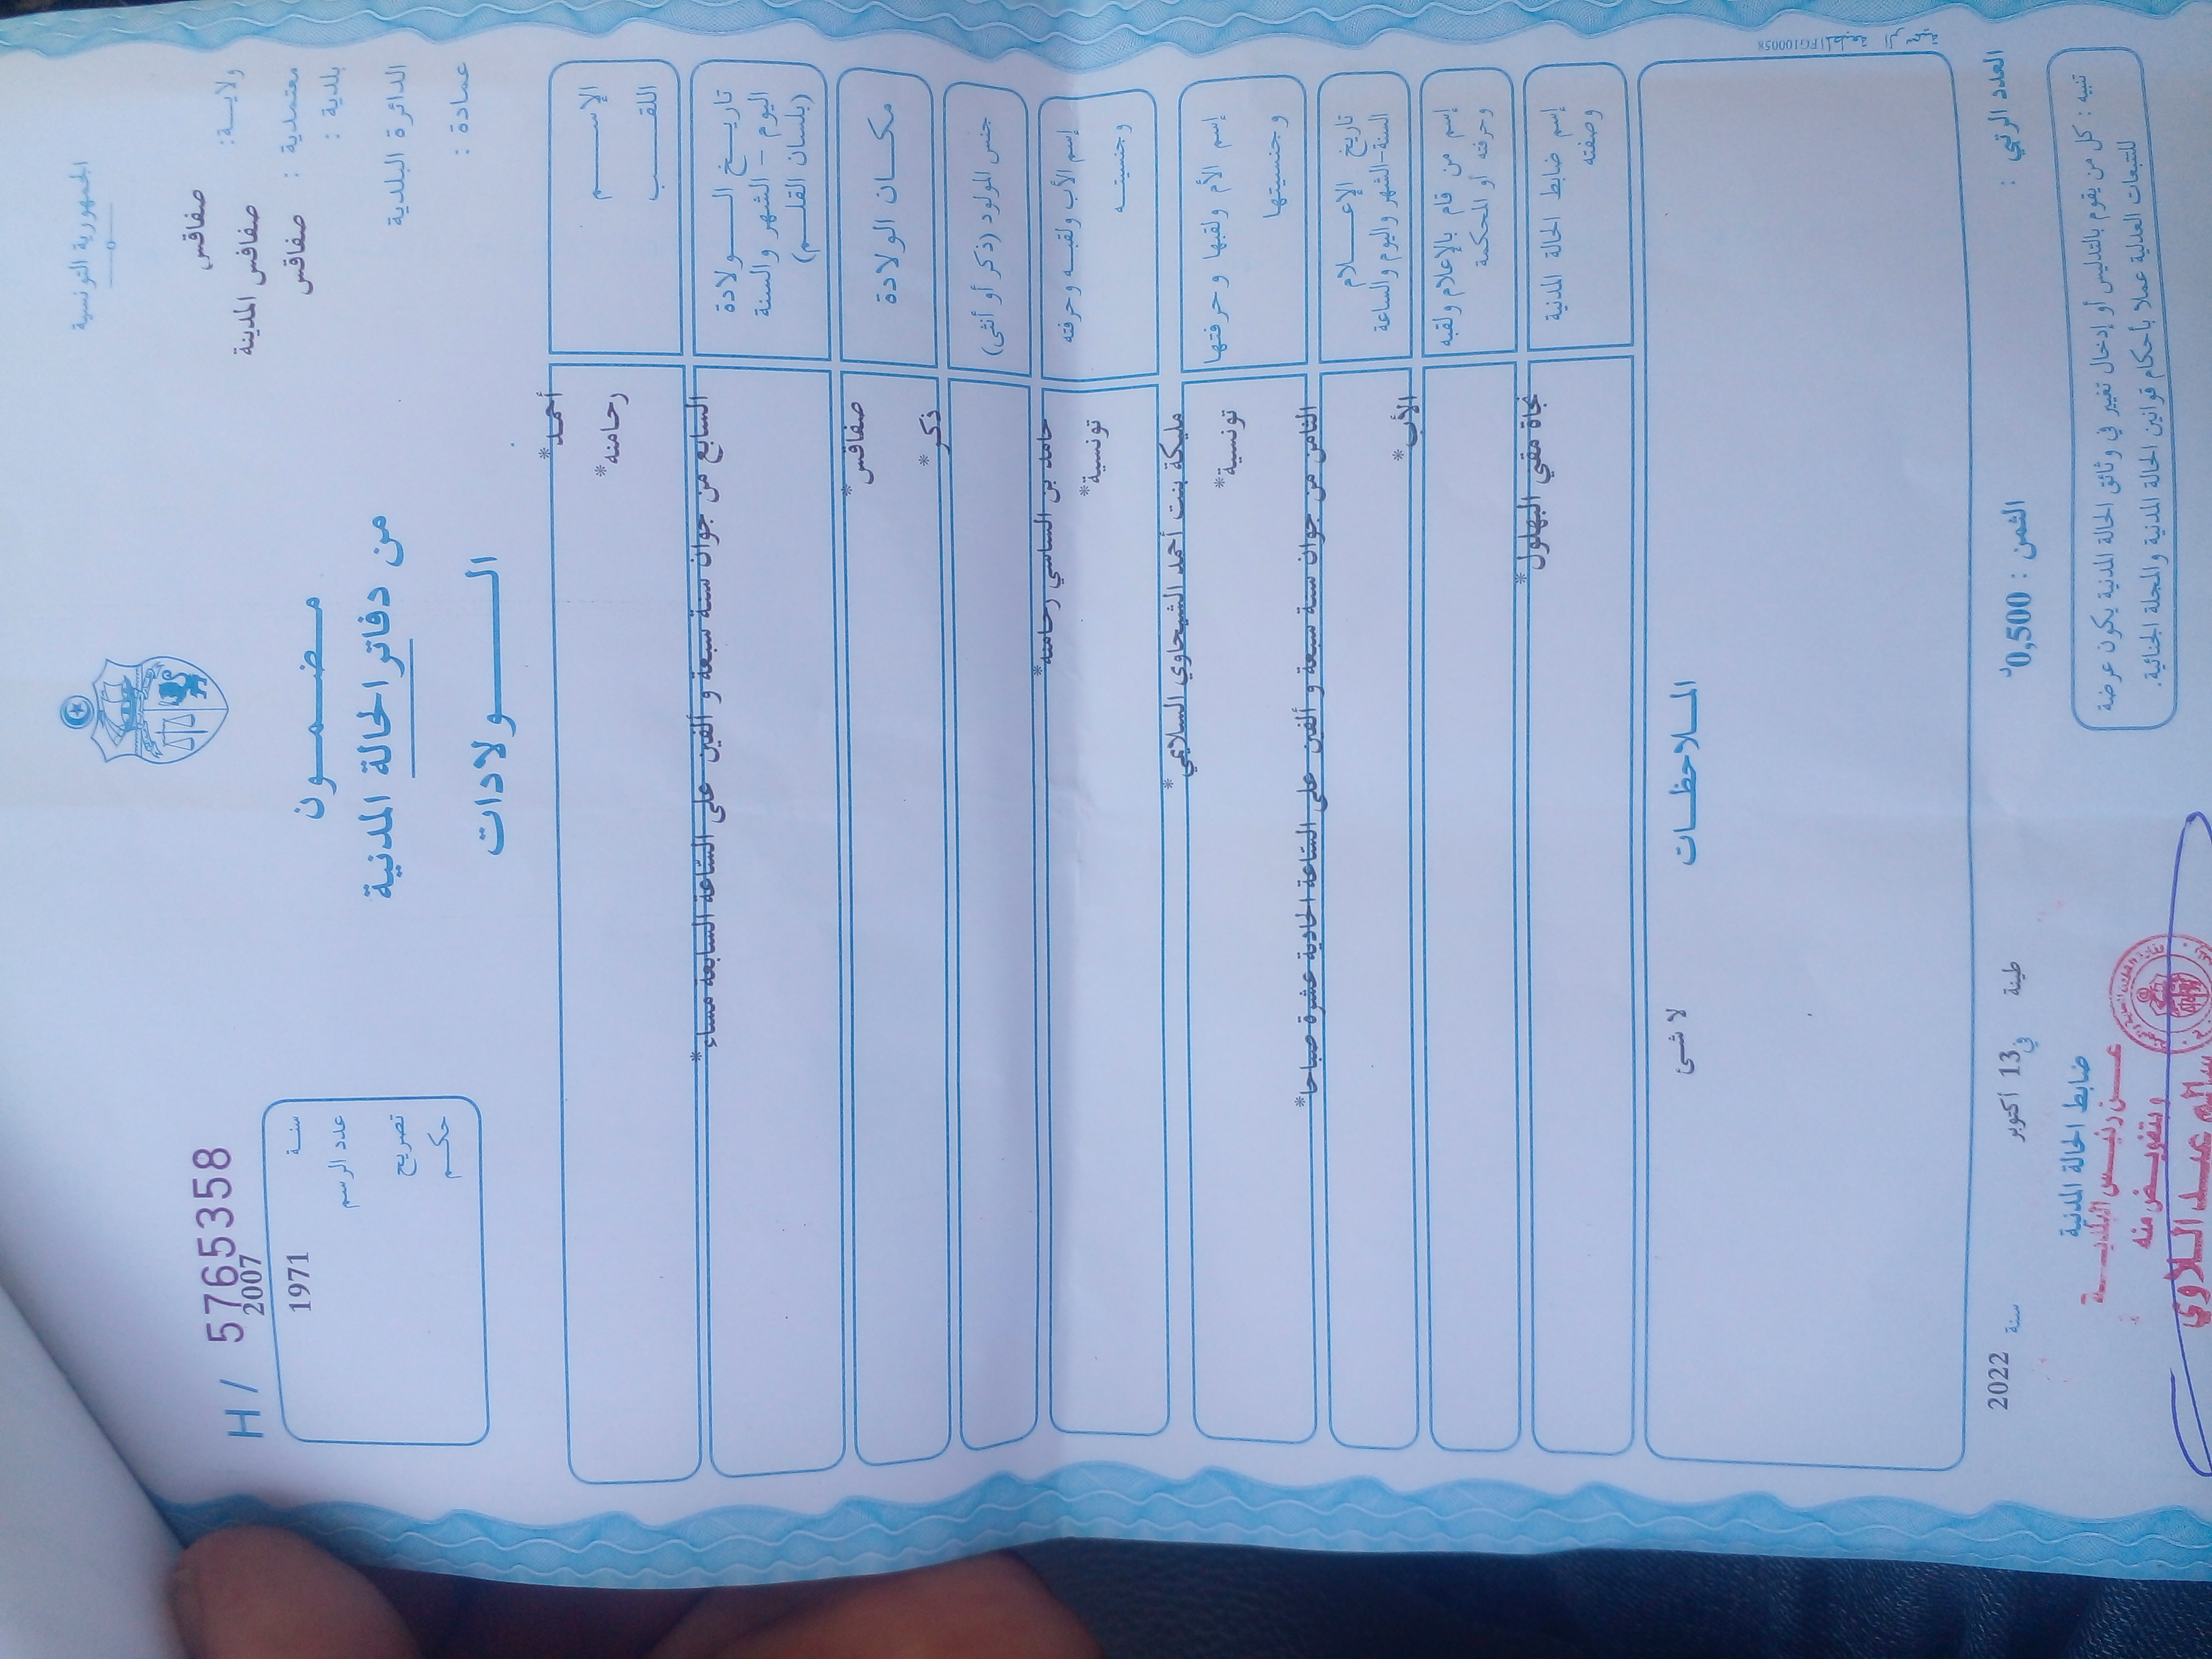 الجمهورية التونسية
ولايـــة: صفاقس
معتمدية : صفاقس المدينة
بلدية : صفاقس
الدائرة البلدية
عمادة :
H / 5765358
2007
سنة 1971
عدد الرسم
تصريح
حكم
مضمون
من دفاتر الحالة المدنية
الولادات
الإسم أحمد*
اللقب رحامنه*
تاريخ الولادة
اليوم - الشهر والسنة
(بلسان القلم)
السابع من جوان سنة سبعة و ألفين على الساعة السابعة مساء*
مكان الولادة صفاقس*
جنس المولود (ذكر أو أنثى) ذكر*
إسم الأب ولقبه وحرفته حامد بن الساسي رحامنه*
وجنسيته تونسية*
إسم الأم ولقبها وحرفتها مليكة بنت أحمد الشيحاوي السلايمي*
وجنسيتها تونسية*
تاريخ الإعلام
السنة-الشهر واليوم والساعة
الثامن من جوان سنة سبعة و ألفين على الساعة الحادية عشرة صباحا*
إسم من قام بالإعلام ولقبه
وحرفته أو المحكمة
الأب*
إسم ضابط الحالة المدنية
وصفته
نجاة مقني البهلول*
الملاحظات
لا شئ
المطبعة الرسمية FG100058
العدد الرتبي :
الثمن : 0,500د
طينة في 13 أكتوبر سنة 2022
تنبيه : كل من يقوم بالتدليس أو إدخال تغيير في وثائق الحالة المدنية يكون عرضة
للتتبعات العدلية عملا بأحكام قوانين الحالة المدنية والمجلة الجنائية.
ضابط الحالة المدنية
عن رئيس البلدية
وبتفويض منه